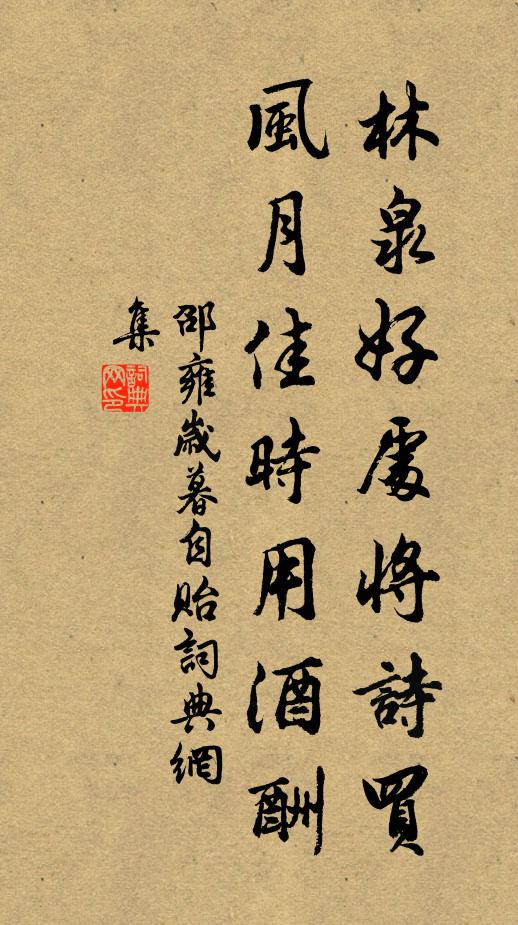 林泉好處將詩買
風月佳時用酒酬
邵雍歲暮自貽詞典網
集
詞典
網印